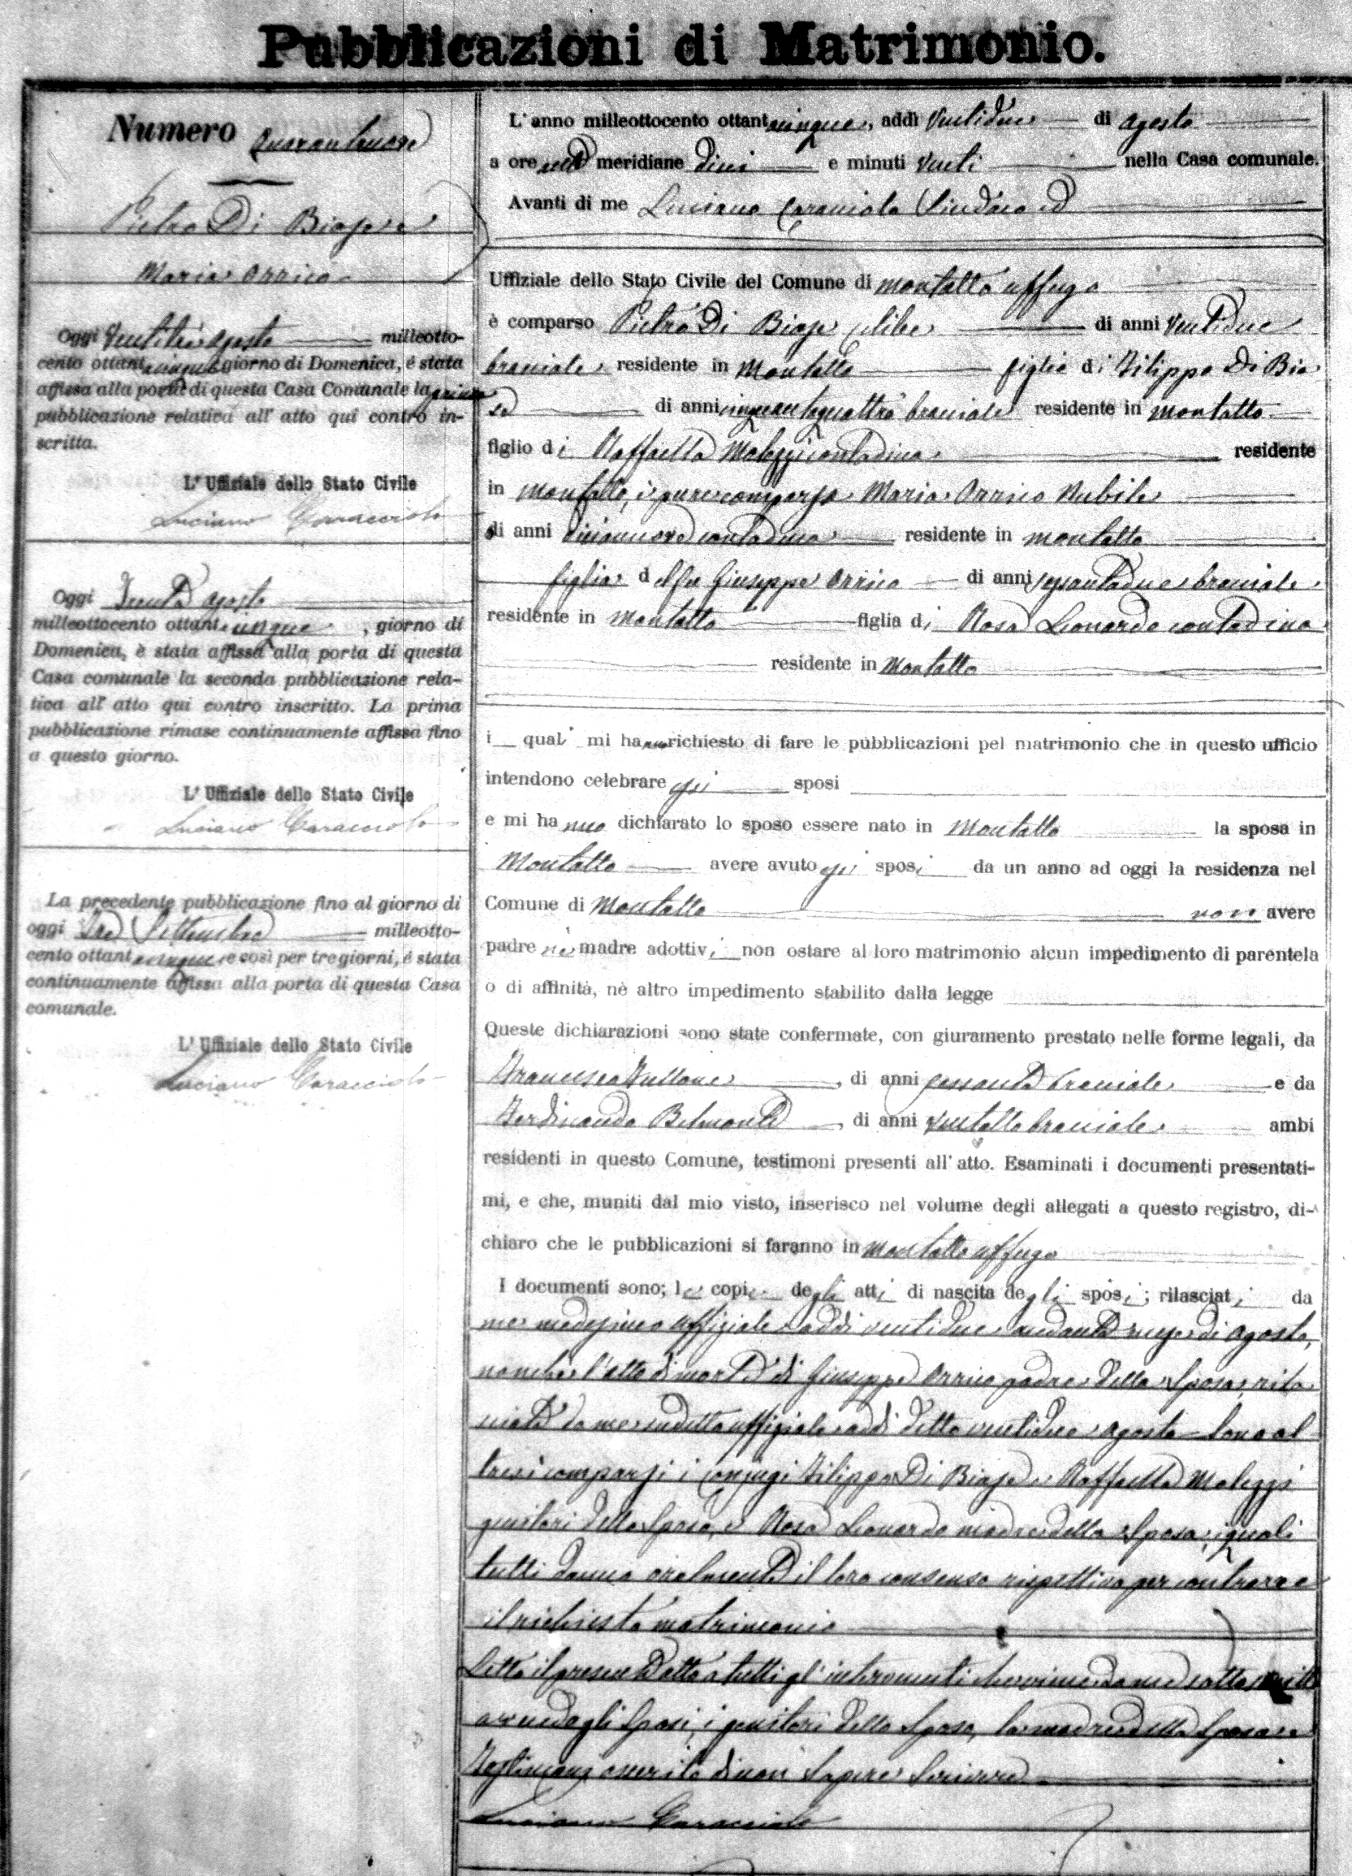 Pubblicazioni di Matrimonio.
Numero Quarantanove
Pietro Di Biase e
Maria Orrico
Oggi Ventitré agosto milleotto-
cento ottantacinque giorno di Domenica, é stata
affissa alla porta di questa Casa Comunale la prima
pubblicazione relativa all' atto qui contro in-
scritta.
L' Uffiziale dello Stato Civile
Luciano Caracciolo
Oggi Trenta agosto
milleottocento ottantacinque, giorno di
Domenica, è stata affissa alla porta di questa
Casa comunale la seconda pubblicazione rela-
tiva all' atto qui contro inscritto. La prima
pubblicazione rimase continuamente affissa fino
a questo giorno.
L' Uffiziale dello Stato Civile
Luciano Caracciolo
La precedente pubblicazione fino al giorno di
oggi Tre Settembre milleotto-
cento ottantacinque e così per tre giorni, é stata
continuamente affissa alla porta di questa Casa
comunale.
L' Uffiziale dello Stato Civile
Luciano Caracciolo
L' anno milleottocento ottantacinque, addì Ventidue di agosto
a ore anti meridiane dieci e minuti Venti nella Casa comunale.
Avanti di me Luciano Caraciolo Sindaco ed
Uffiziale dello Stato Civile del Comune di Montalto Uffugo
è comparso Pietro Di Biase celibe di anni Ventidue
bracciale residente in Montalto figlio di Filippo Di Bia
se di anni cinquantaquattro bracciale residente in Montalto
figlio di Raffaella Molezzi contadina residente
in Montalto, è pure comparsa Maria Orrico Nubile
di anni diciannove contadina residente in Montalto
figlia del fu Giuseppe Orrico di anni sessantadue bracciale
residente in Montalto figlia di Rosa Leonardo contadina
residente in Montalto
i quali mi hanno richiesto di fare le pubblicazioni pel matrimonio che in questo ufficio
intendono celebrare gli sposi
e mi hanno dichiarato lo sposo essere nato in Montalto la sposa in
Montalto avere avuto gli sposi da un anno ad oggi la residenza nel
Comune di Montalto non avere
padre nè madre adottivi non ostare al loro matrimonio alcun impedimento di parentela
o di affinità, nè altro impedimento stabilito dalla legge
Queste dichiarazioni sono state confermate, con giuramento prestato nelle forme legali, da
Francesco di anni sessanta bracciale e da
Ferdinando Belmonte, di anni Ventotto bracciale ambi
residenti in questo Comune, testimoni presenti all' atto. Esaminati i documenti presentati-
mi, e che, muniti dal mio visto, inserisco nel volume degli allegati a questo registro, di-
chiaro che le pubblicazioni si faranno in Montalto Uffugo
I documenti sono; le copie degli atti di nascita degli sposi; rilasciati da
me medesimo Uffiziale addi ventidue andante mese di agosto,
nonche l'atto di morte di Giuseppe Orrico padre della Sposa, rila
sciato da me sudetto uffiziale addi detto ventidue agosto Sono al
tresi comparsi i conjugi Filippo Di Biase e Raffaella Molezzi
genitori dello Sposo, e Rosa Leonardo madre della Sposa, i quali
tutti danno oralmente il loro consenso rispettivo per contrarre
il richiesto matrimonio
Letto il presente atto a tutti gl'intervenuti viene da me sottoscritto
avendo gli Sposi, i genitori dello Sposo, la madre della Sposa e
Testimoni asserito di non Sapere Scrivere
Luciano Caracciolo